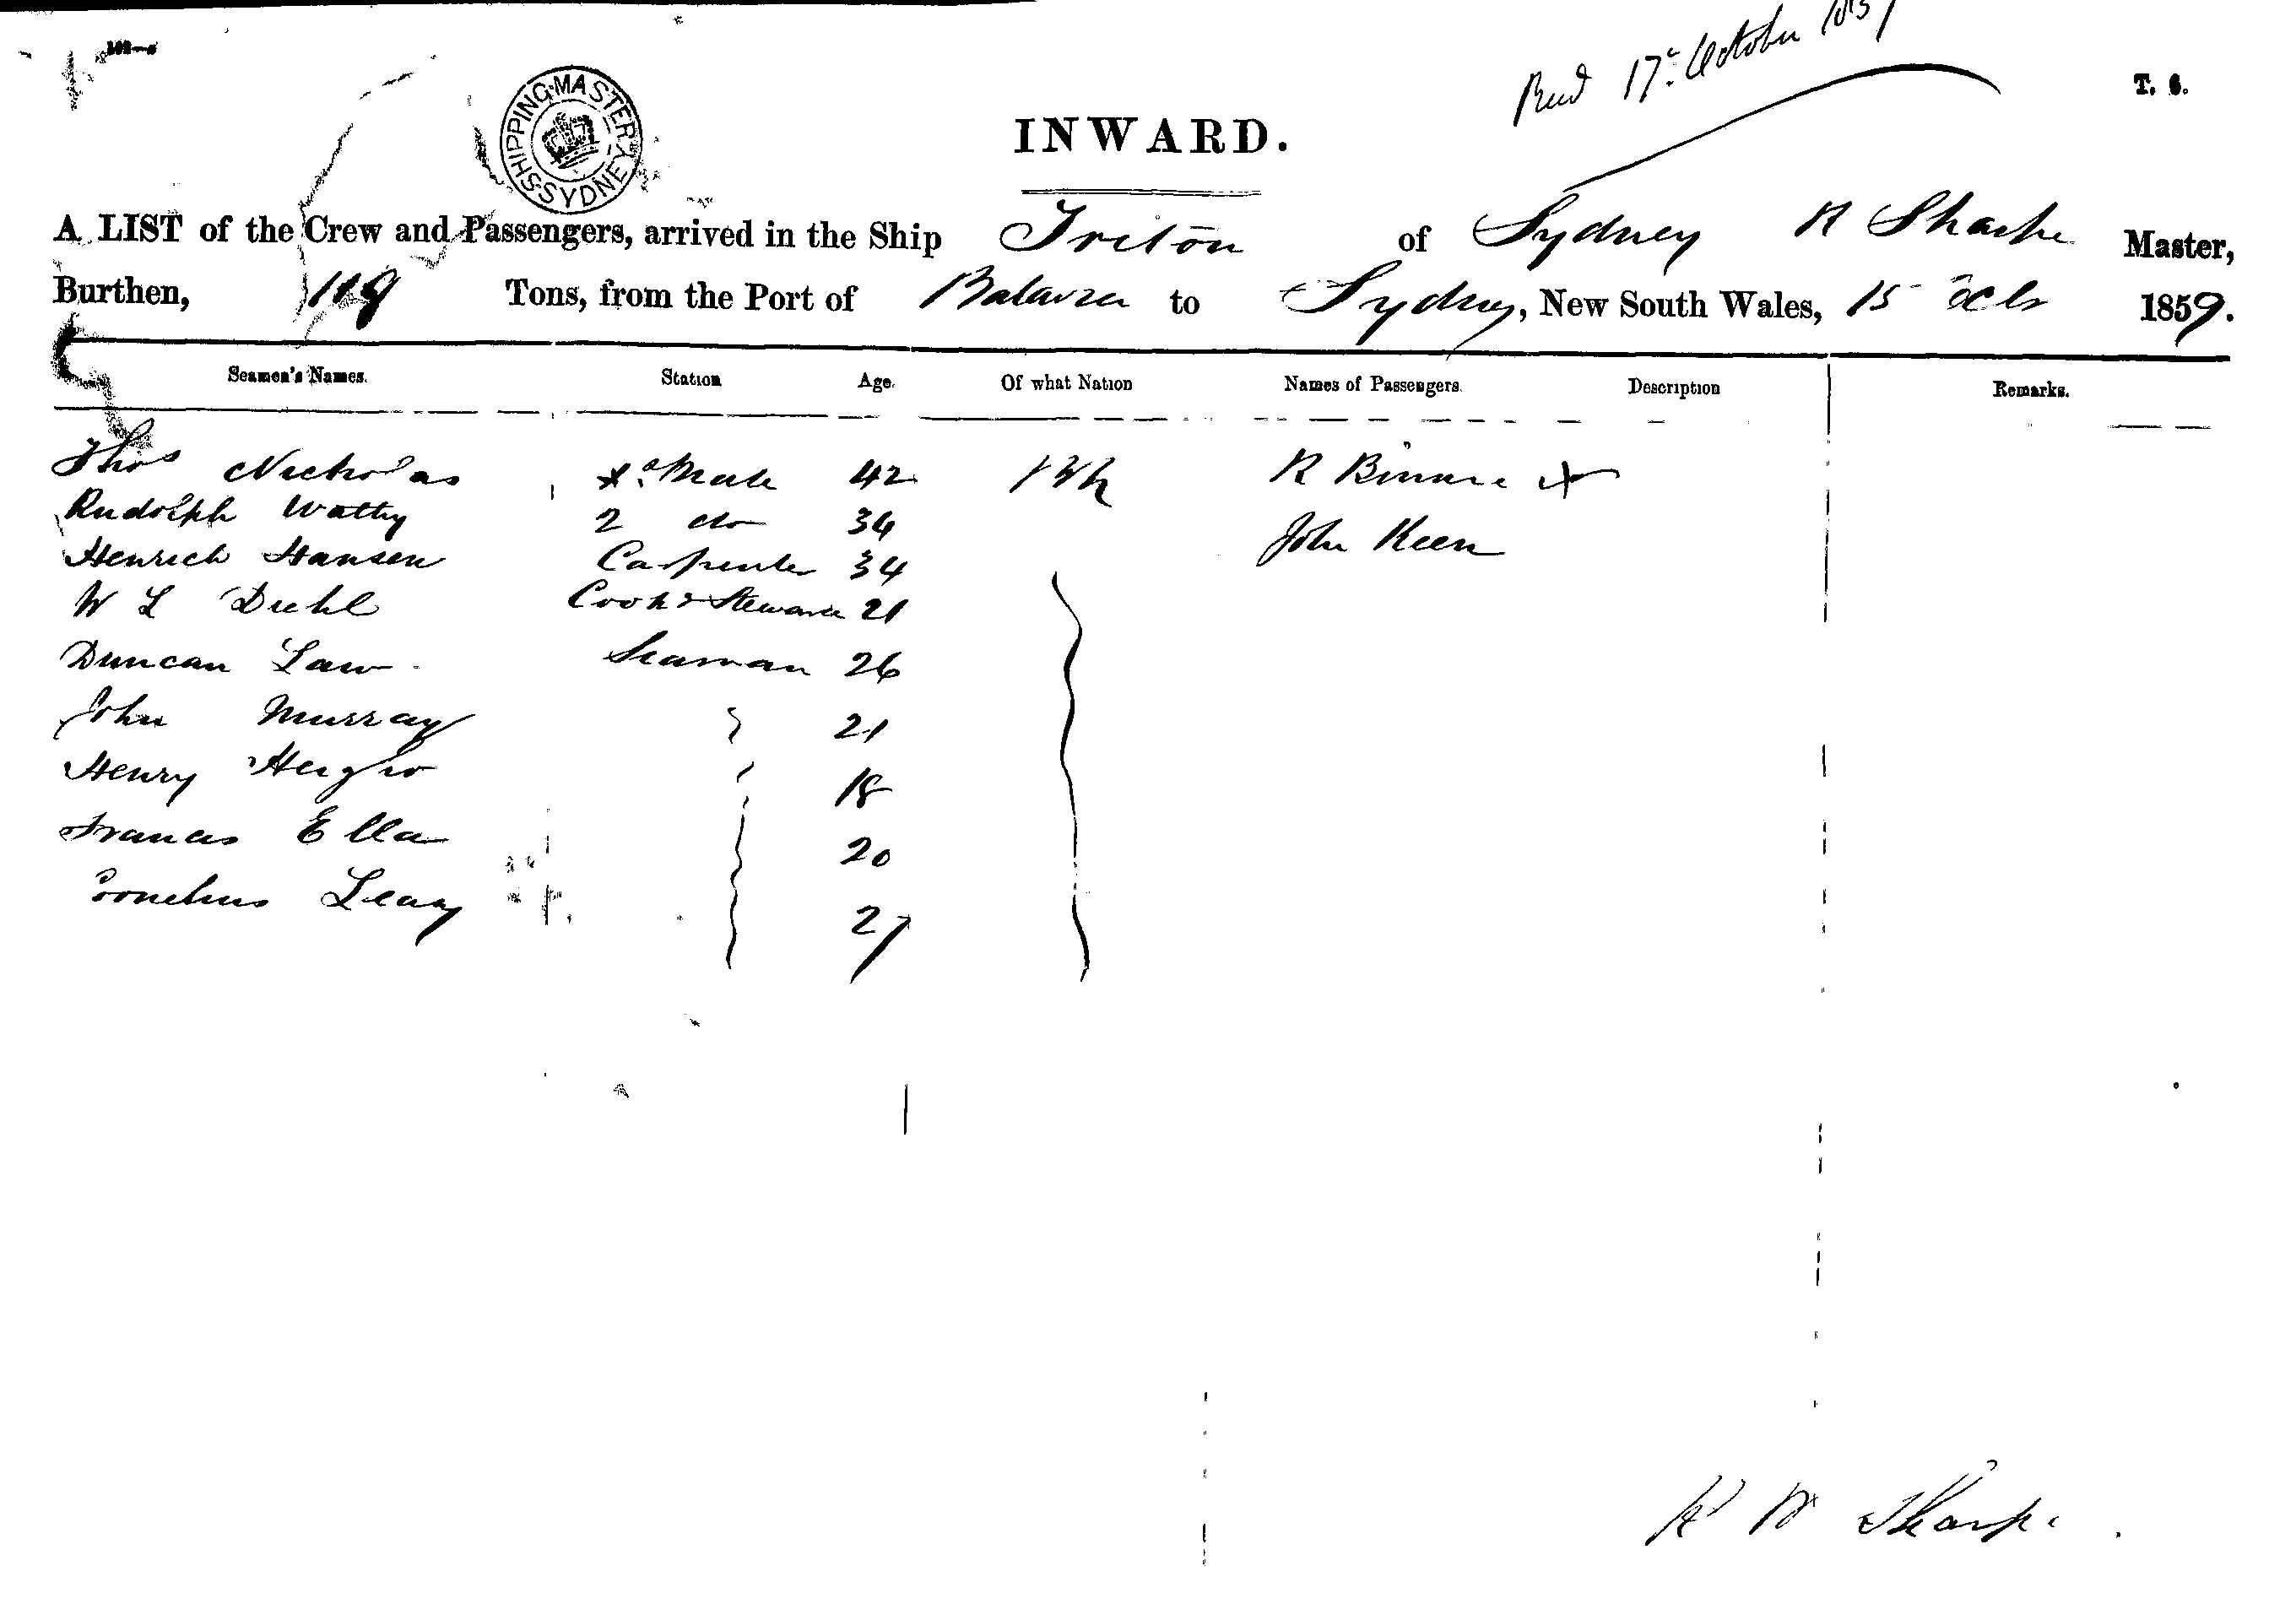 Recd 17th October 1859
T. 6.
SHIPPING MASTER SYDNEY
INWARD.
A LIST of the Crew and Passengers, arrived in the Ship Triton of Sydney R Sharpe Master,
Burthen, 119 Tons, from the Port of Batavia to Sydney, New South Wales, 15 Octr 1859.
Seamen's Names. Station Age. Of what Nation Names of Passengers. Description Remarks.
Thos Nicholas Mate 42 R Binnie
Rudolph Watty 2 do 34 John Keen
Henrich Hansen Carpenter 34
W L Diehl Cook & Steward 21
Duncan Law Seaman 26
John Murray 21
Henry 18
Francis Ella 20
Cornelius Leary 27
Sharpe